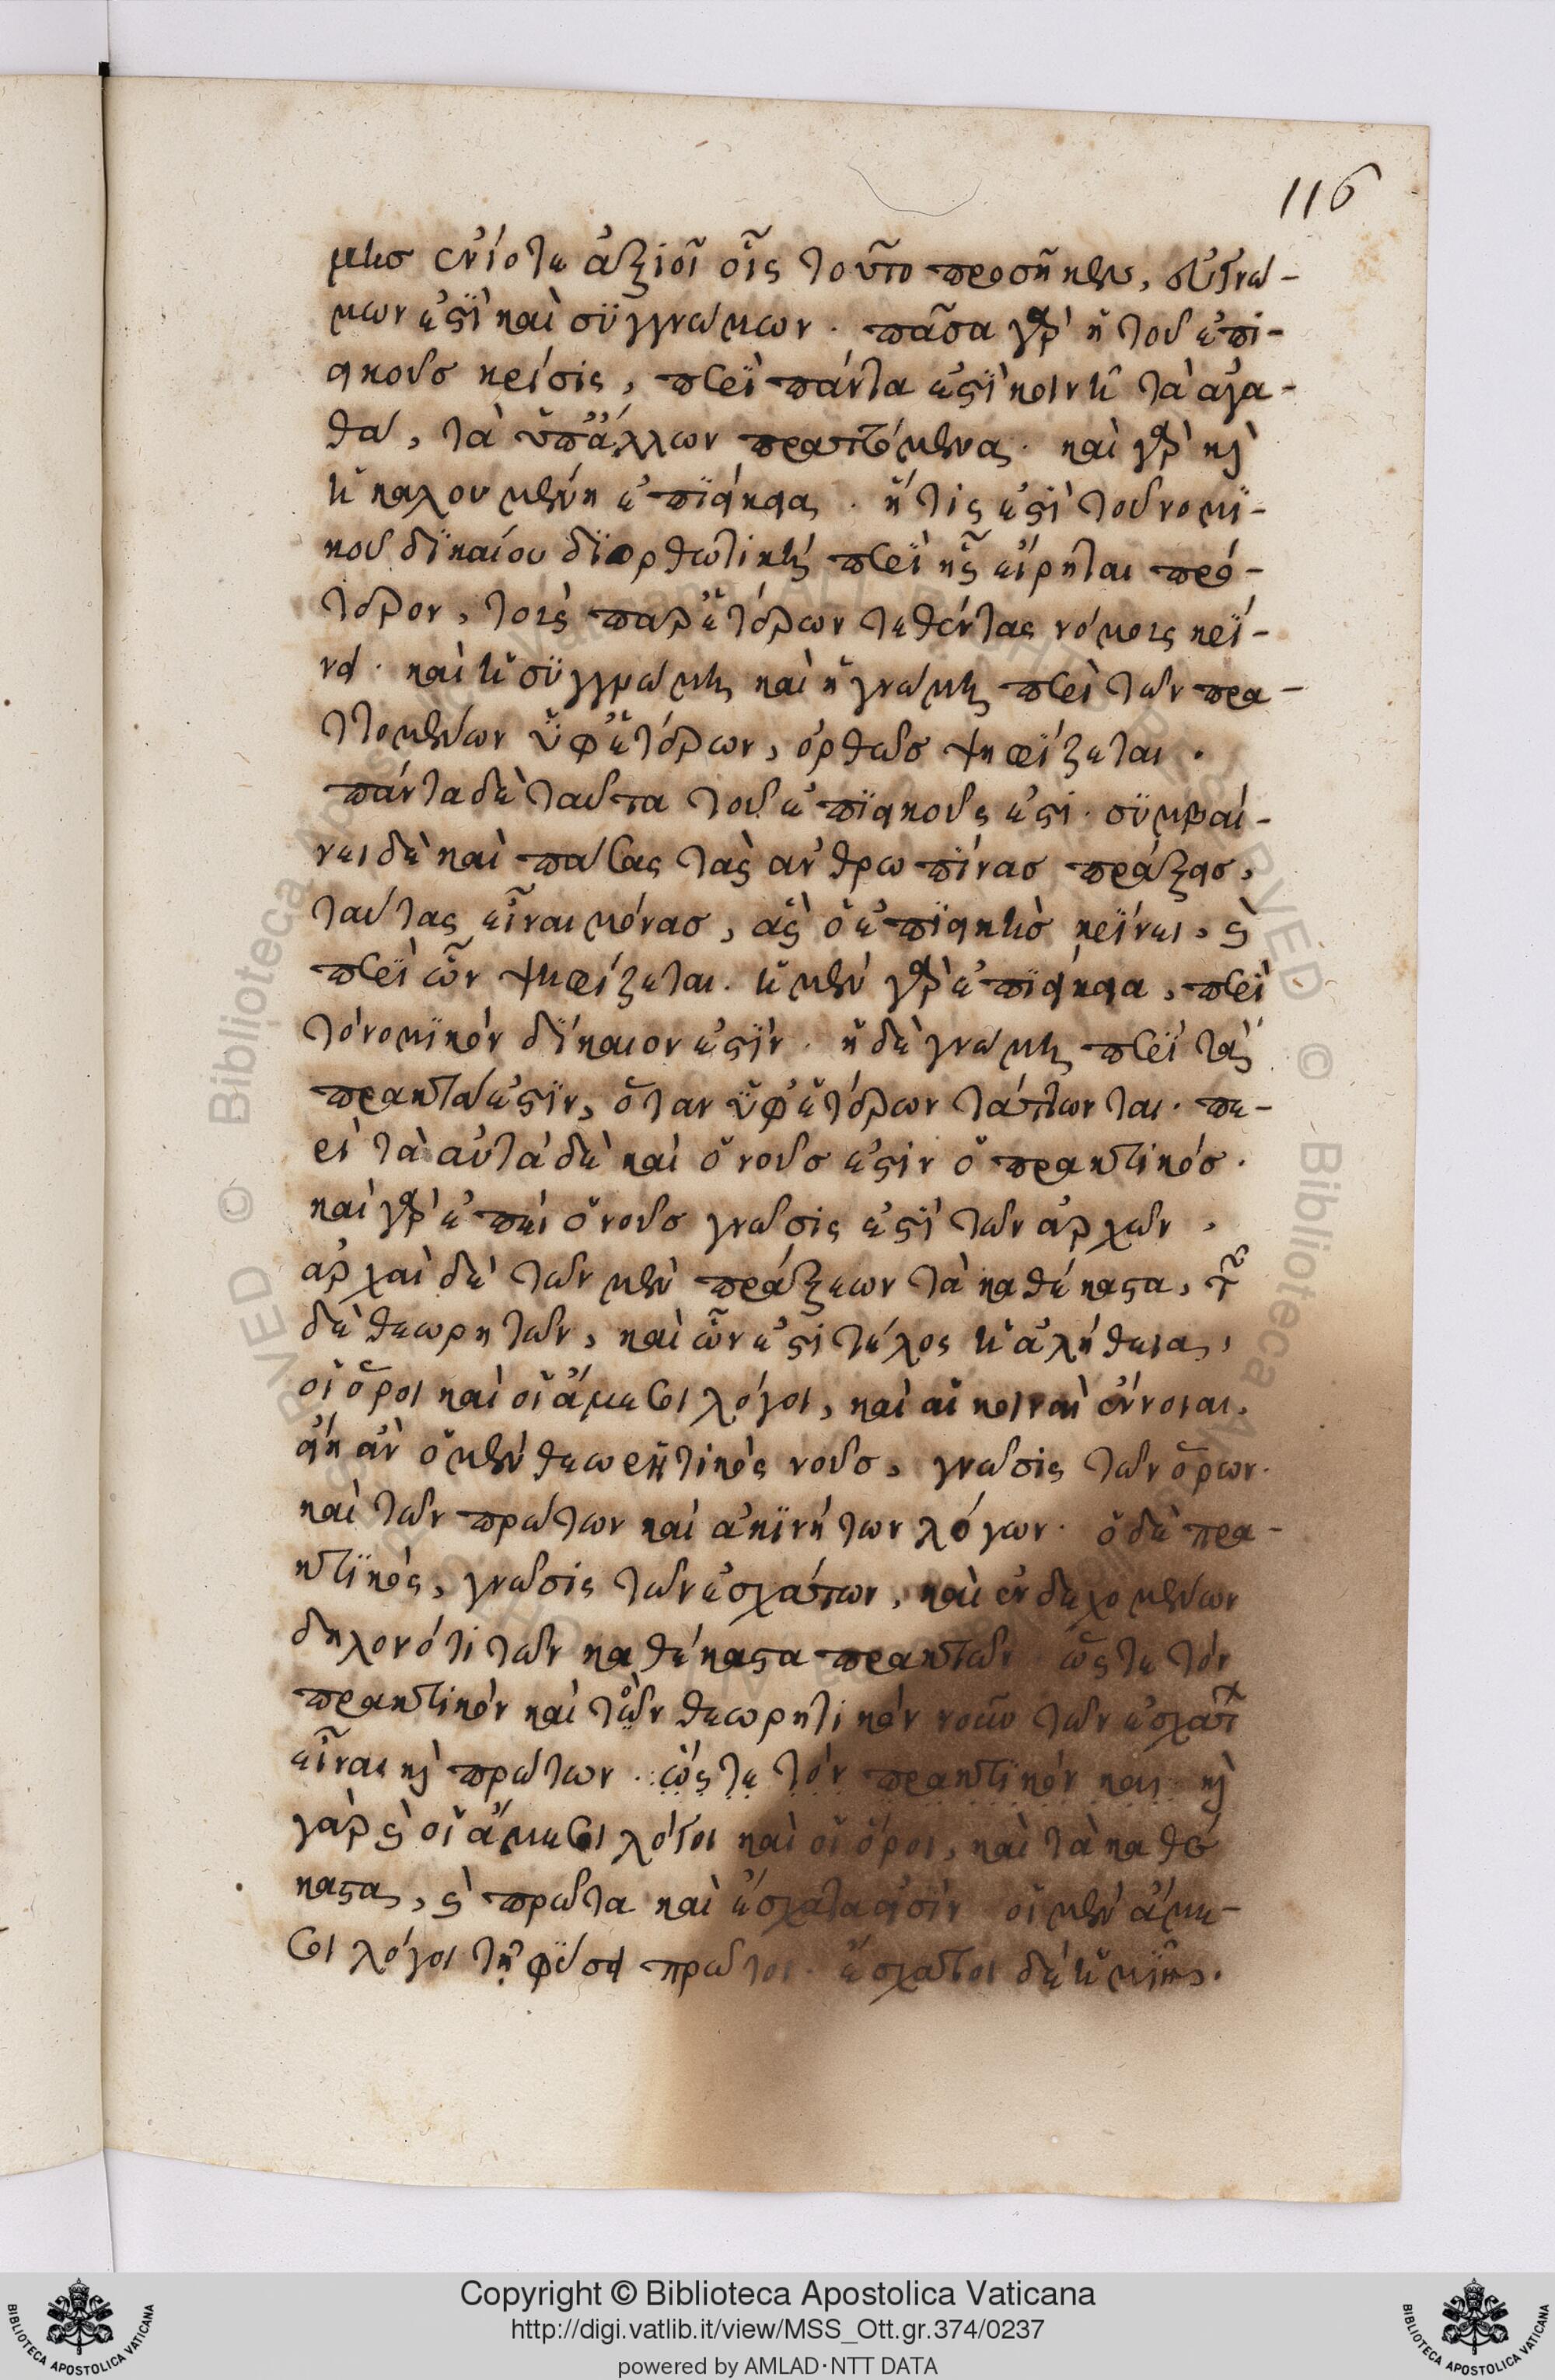 116
μης ἐνίοτε ἀξιοῖ οἷς τοῦτο προσῆκεν, εὐγνώ-
μων ἐστὶ καὶ συγγνώμων. πᾶσα γὰρ ἡ τοῦ ἐπι-
εικοῦς κρίσις, περὶ πάντα ἐστὶ κοινῆ τὰ ἀγα-
θά, τὰ ὑπ' ἄλλων πραττόμενα. καὶ γὰρ καὶ
ἡ καλουμένη ἐπιείκεια. ἥτις ἐστὶ τοῦ νομι-
κοῦ δικαίου διορθωτικὴ περὶ ἧς εἴρηται πρό-
τερον, τοὶς παρ' ἑτέρων τεθέντας νόμοις κρί-
νει. καὶ ἡ συγγνώμη καὶ ἡ γνώμη περὶ τῶν πρα-
ττομένων ὑφ' ἑτέρων, ὀρθῶς ψηφίζεται.
πάντα δὲ ταῦτα τοῦ ἐπιεικοῦς ἐστι. συμβαί-
νει δὲ καὶ πάσας τὰς ἀνθρωπίνας πράξεις,
ταύτας εἶναι μόνας, ἃς ὁ ἐπιεικὴς κρίνει, καὶ
περὶ ὧν ψηφίζεται. ἡ μὲν γὰρ ἐπιείκεια, περὶ
τὸ νομικὸν δίκαιον ἐστὶν. ἡ δὲ γνώμη περὶ τὰς
πρακτά ἐστιν, ὅταν ὑφ' ἑτέρων τάττωνται. πε-
ρὶ τὰ αὐτὰ δὲ καὶ ὁ νοῦς ἐστὶν ὁ πρακτικός.
καὶ γὰρ ἐπεὶ ὁ νοῦς γνῶσις ἐστὶ τῶν ἀρχῶν,
ἀρχαὶ δὲ τῶν μὲν πράξεων τὰ καθέκαστα, τῶν
δὲ θεωρητῶν, καὶ ὧν ἐστὶ τέλος ἡ ἀλήθεια,
οἱ ὅροι καὶ οἱ ἄμεσοι λόγοι, καὶ αἱ κοιναὶ ἔννοιαι,
εἴη ἂν ὁ μὲν θεωρητικὸς νοῦς, γνῶσις τῶν ὅρων.
καὶ τῶν πρώτων καὶ ἀκινήτων λόγων. ὁ δὲ πρα-
κτικὸς, γνῶσις τῶν ἐσχάτων, καὶ ἐνδεχομένων
δηλονότι τῶν καθέκαστα πρακτῶν ὥστε τὸν
πρακτικὸν καὶ τὸν θεωρητικὸν νοῦν τῶν ἐσχάτ
εἶναι καὶ πρώτων. ὥστε τὸν πρακτικὸν και καὶ
γὰρ καὶ οἱ ἄμεσοι λόγοι καὶ οἱ ὅροι, καὶ τὰ καθέ
καστα, καὶ πρῶτα καὶ ἔσχατα εἰσὶν οἱ μὲν ἄμε-
σοι λόγοι τῇ φύσει πρῶτοι. ἔσχατοι δὲ ἡμῖν.
Copyright © Biblioteca Apostolica Vaticana
http://digi.vatlib.it/view/MSS_Ott.gr.374/0237
powered by AMLAD·NTT DATA
BIBLIOTECA APOSTOLICA VATICANA
BIBLIOTECA APOSTOLICA VATICANA